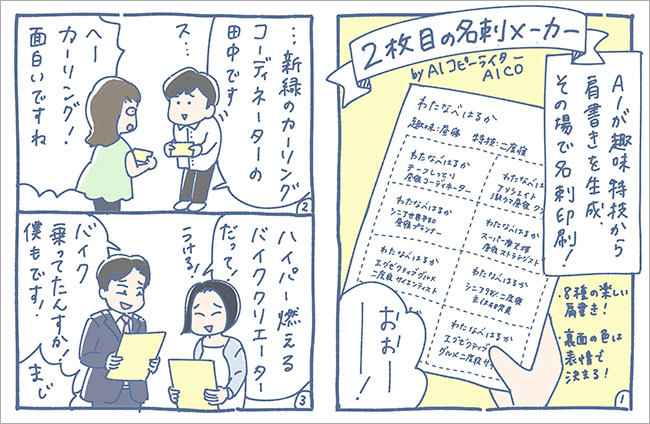 2枚目の名刺メーカー
by AIコピーライター
AICO
AIが趣味特技から
肩書きを生成、
その場で名刺印刷!
わたなべはるか
趣味:昼寝 特技:二度寝
わたなべはるか
昼寝コーディネーター
わたなべはるか
わたなべはるか
シニア世界平和
昼寝プランナー
わたなべはるか
昼寝ストラテジスト
わたなべはるか
エグゼクティブグルメ
二度寝サイエンティスト
わたなべはるか
わたなべはるか
エグゼクティブ
グルメ二度寝
・8種の楽しい
肩書き!
・裏面の色は
表情で
決まる!
おおー!
1
…新緑のカーリング
コーディネーターの
田中です
ス…
へー
カーリング!
面白いですね
2
ハイパー燃える
バイククリエーター
だって!
うける!
バイク
乗ってたんすか!
僕もです!
まじ
3